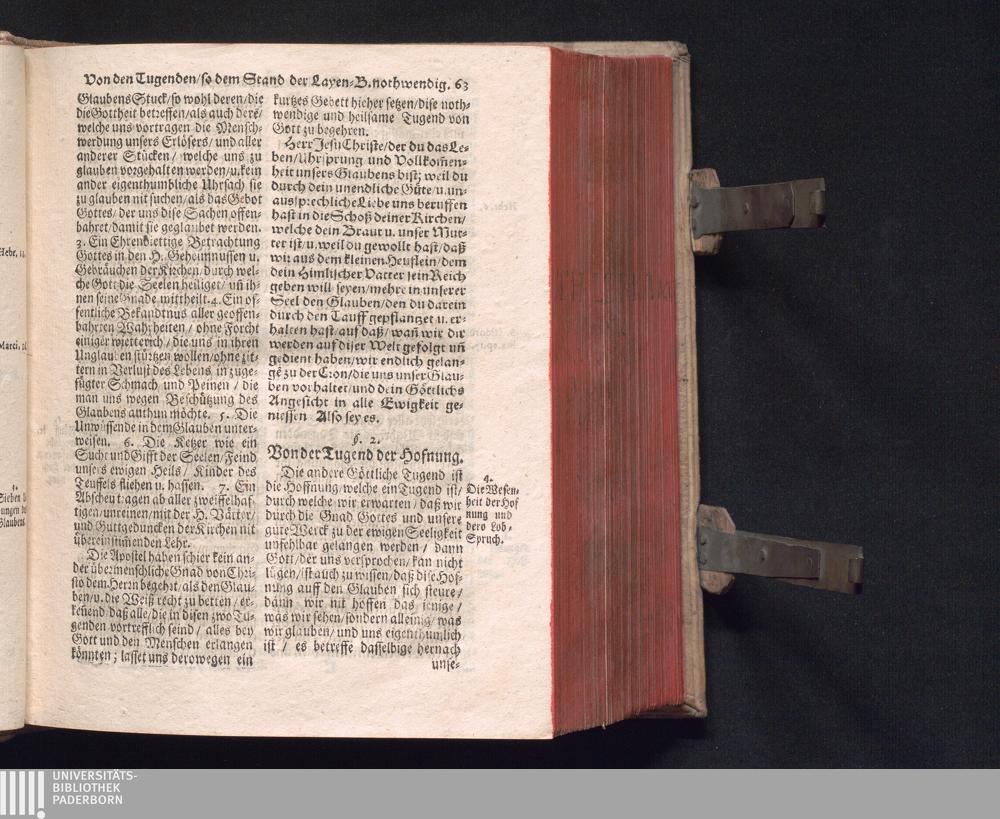 Von den Tugenden/so dem Stand der Layen-B. nothwendig. 63
Glaubens Stuck/so wohl deren/die
die Gottheit betreffen/als auch derē/
welche uns vortragen die Mensch-
werdung unsers Erlösers/und aller
anderer Stücken/ welche uns zu
glauben vorgehalten werden/u.kein
ander eigenthumbliche Uhrsach sie
zu glauben nit suchen/als das Gebot
Gottes/der uns dise Sachen offen-
bahret/damit sie geglaubet werden.
3. Ein Ehrenbiettige Betrachtung
Gottes in den H. Geheimnussen u.
Gebräuchen der Kirchen/durch wel-
che Gott die Seelen heiliget/ uñ ih-
nen seine Gnade mittheilt.4. Ein of-
fentliche Bekandtnus aller geoffen-
bahrten Wahrheiten/ ohne Forcht
einiger wietterich/die uns in ihren
Unglauben stürtzen wollen/ohne zit-
tern in Verlust des Lebens in zuge-
fügter Schmach und Peinen / die
man uns wegen Beschützung des
Glaubens anthun möchte. 5. Die
Unwissende in dem Glauben unter-
weisen. 6. Die Ketzer wie ein
Sucht und Gifft der Seelen/Feind
unsers ewigen Heils/ Kinder des
Teuffels fliehen u. hassen. 7. Ein
Abscheu tragen ab aller zweiffelhaf-
tigen/unreinen/mit der H. Vätter/
und Guttgeduncken der Kirchen nit
übereinstim̃enden Lehr.
Die Apostel haben schier kein an-
der übermenschliche Gnad von Chri-
sto dem Herrn begehrt/als den Glau-
ben/u.die Weiß recht zu betten/ er-
keñend daß alle/die in disen zwo Tu-
genden vortrefflich seind/ alles bey
Gott und den Menschen erlangen
könnten; lasset uns derowegen ein
kurtzes Gebett hieher setzen/dise noth-
wendige und heilsame Tugend von
Gott zu begehren.
Herr Jesu Christe/der du das Le-
ben/Uhrsprung und Vollkom̃en-
heit unsers Glaubens bist; weil du
durch dein unendliche Güte/u.un-
aussprechliche Liebe uns beruffen
hast in die Schoß deiner Kirchen/
welche dein Braut u. unser Mut-
ter ist/u.weil du gewollt hast/daß
wir aus dem kleinen Heuflein/dem
dein Himlischer Vatter sein Reich
geben will seyen/mehre in unserer
Seel den Glauben/den du darein
durch den Tauff gepflantzet u. er-
halten hast/auf daß/ wañ wir dir
werden auf diser Welt gefolgt uñ
gedient haben/wir endlich gelan-
gē zu der Cron/die uns unser Glau-
ben vorhaltet/und dein Göttlichs
Angesicht in alle Ewigkeit ge-
niessen Also sey es.
§. 2.
Von der Tugend der Hofnung.
Die andere Göttliche Tugend ist
die Hoffnung/welche ein Tugend ist/
durch welche wir erwarten/ daß wir
durch die Gnad Gottes und unsere
gute Werck zu der ewigen Seeligkeit
unfehlbar gelangen werden/ dann
Gott/der uns versprochen/kan nicht
lügen/ist auch zu wissen/daß dise Hof-
nung auff den Glauben sich steure/
dann wir nit hoffen das jenige/
was wir sehen/sondern alleinig/was
wir glauben/und uns eigenthumlich
ist / es betreffe dasselbige hernach
unse-
4.
Die Wesen-
heit der Hof
nung und
dero Lob-
Spruch.
Hebr. 11
Marci. 16
Sieben
Glaubens
UNIVERSITÄTS-
BIBLIOTHEK
PADERBORN